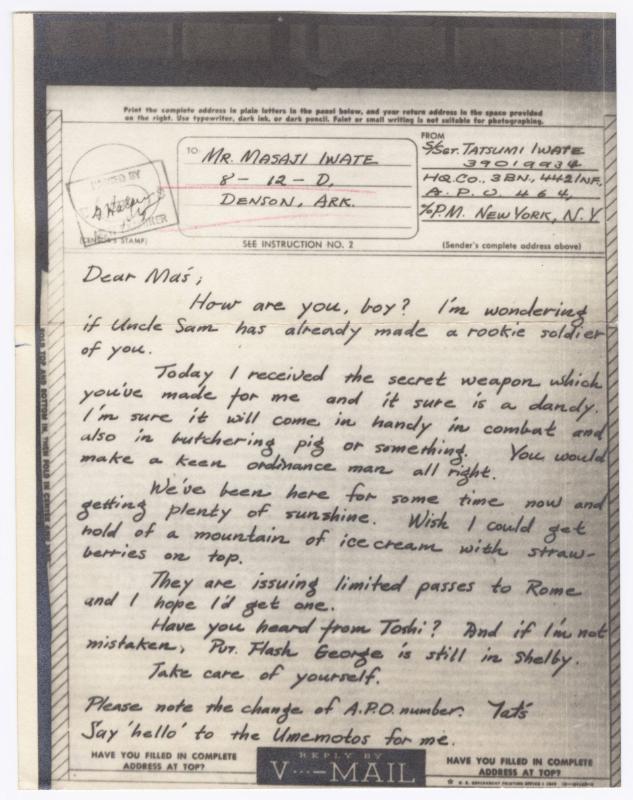 Print the complete address in plain letters in the panel below, and your return address in the space provided
on the right. Use typewriter, dark ink, or dark pencil. Faint or small writing is not suitable for photographing.
TO:
MR. MASAJI IWATE
8-12-D,
DENSON, ARK.
FROM
S/SGT. TATSUMI IWATE
39019934
HQ. CO., 3BN., 442 INF.,
A.P.O. 464,
c/o P.M. NEW YORK, N.Y.
(CENSOR'S STAMP)
SEE INSTRUCTION NO. 2
(Sender's complete address above)
Dear Mas;
How are you, boy? I'm wondering
if Uncle Sam has already made a rookie soldier
of you.
Today I received the secret weapon which
you've made for me and it sure is a dandy.
I'm sure it will come in handy in combat and
also in butchering pig or something. You would
make a keen ordinance man all right.
We've been here for some time now and
getting plenty of sunshine. Wish I could get
hold of a mountain of ice cream with straw-
berries on top.
They are issuing limited passes to Rome
and I hope I'd get one.
Have you heard from Toshi? And if I'm not
mistaken, Pvt. Flash George is still in Shelby.
Take care of yourself.
Please note the change of A.P.O. number. Tats
Say 'hello' to the Umemotos for me.
HAVE YOU FILLED IN COMPLETE
ADDRESS AT TOP?
REPLY BY
V···—MAIL
HAVE YOU FILLED IN COMPLETE
ADDRESS AT TOP?